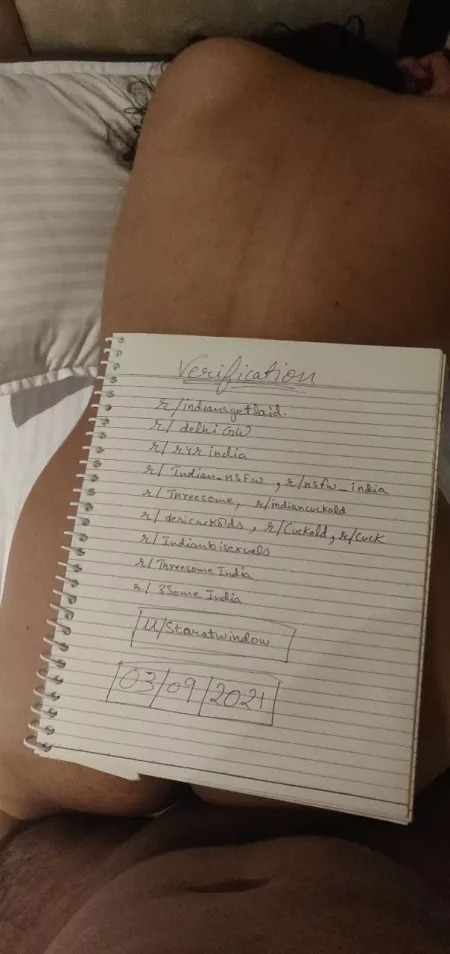 Verification
r/indiansgetlaid.
r/ delhiGW
r/ r4r india
r/ Indian_nsfw , r/nsfw_india
r/ Threesome, r/indiancuckold
r/ desicuckolds , r/Cuckold, r/cuck
r/ Indianbisexuals
r/ Threesome India
r/ 3Some India
u/Staratwindow
03/09/2021